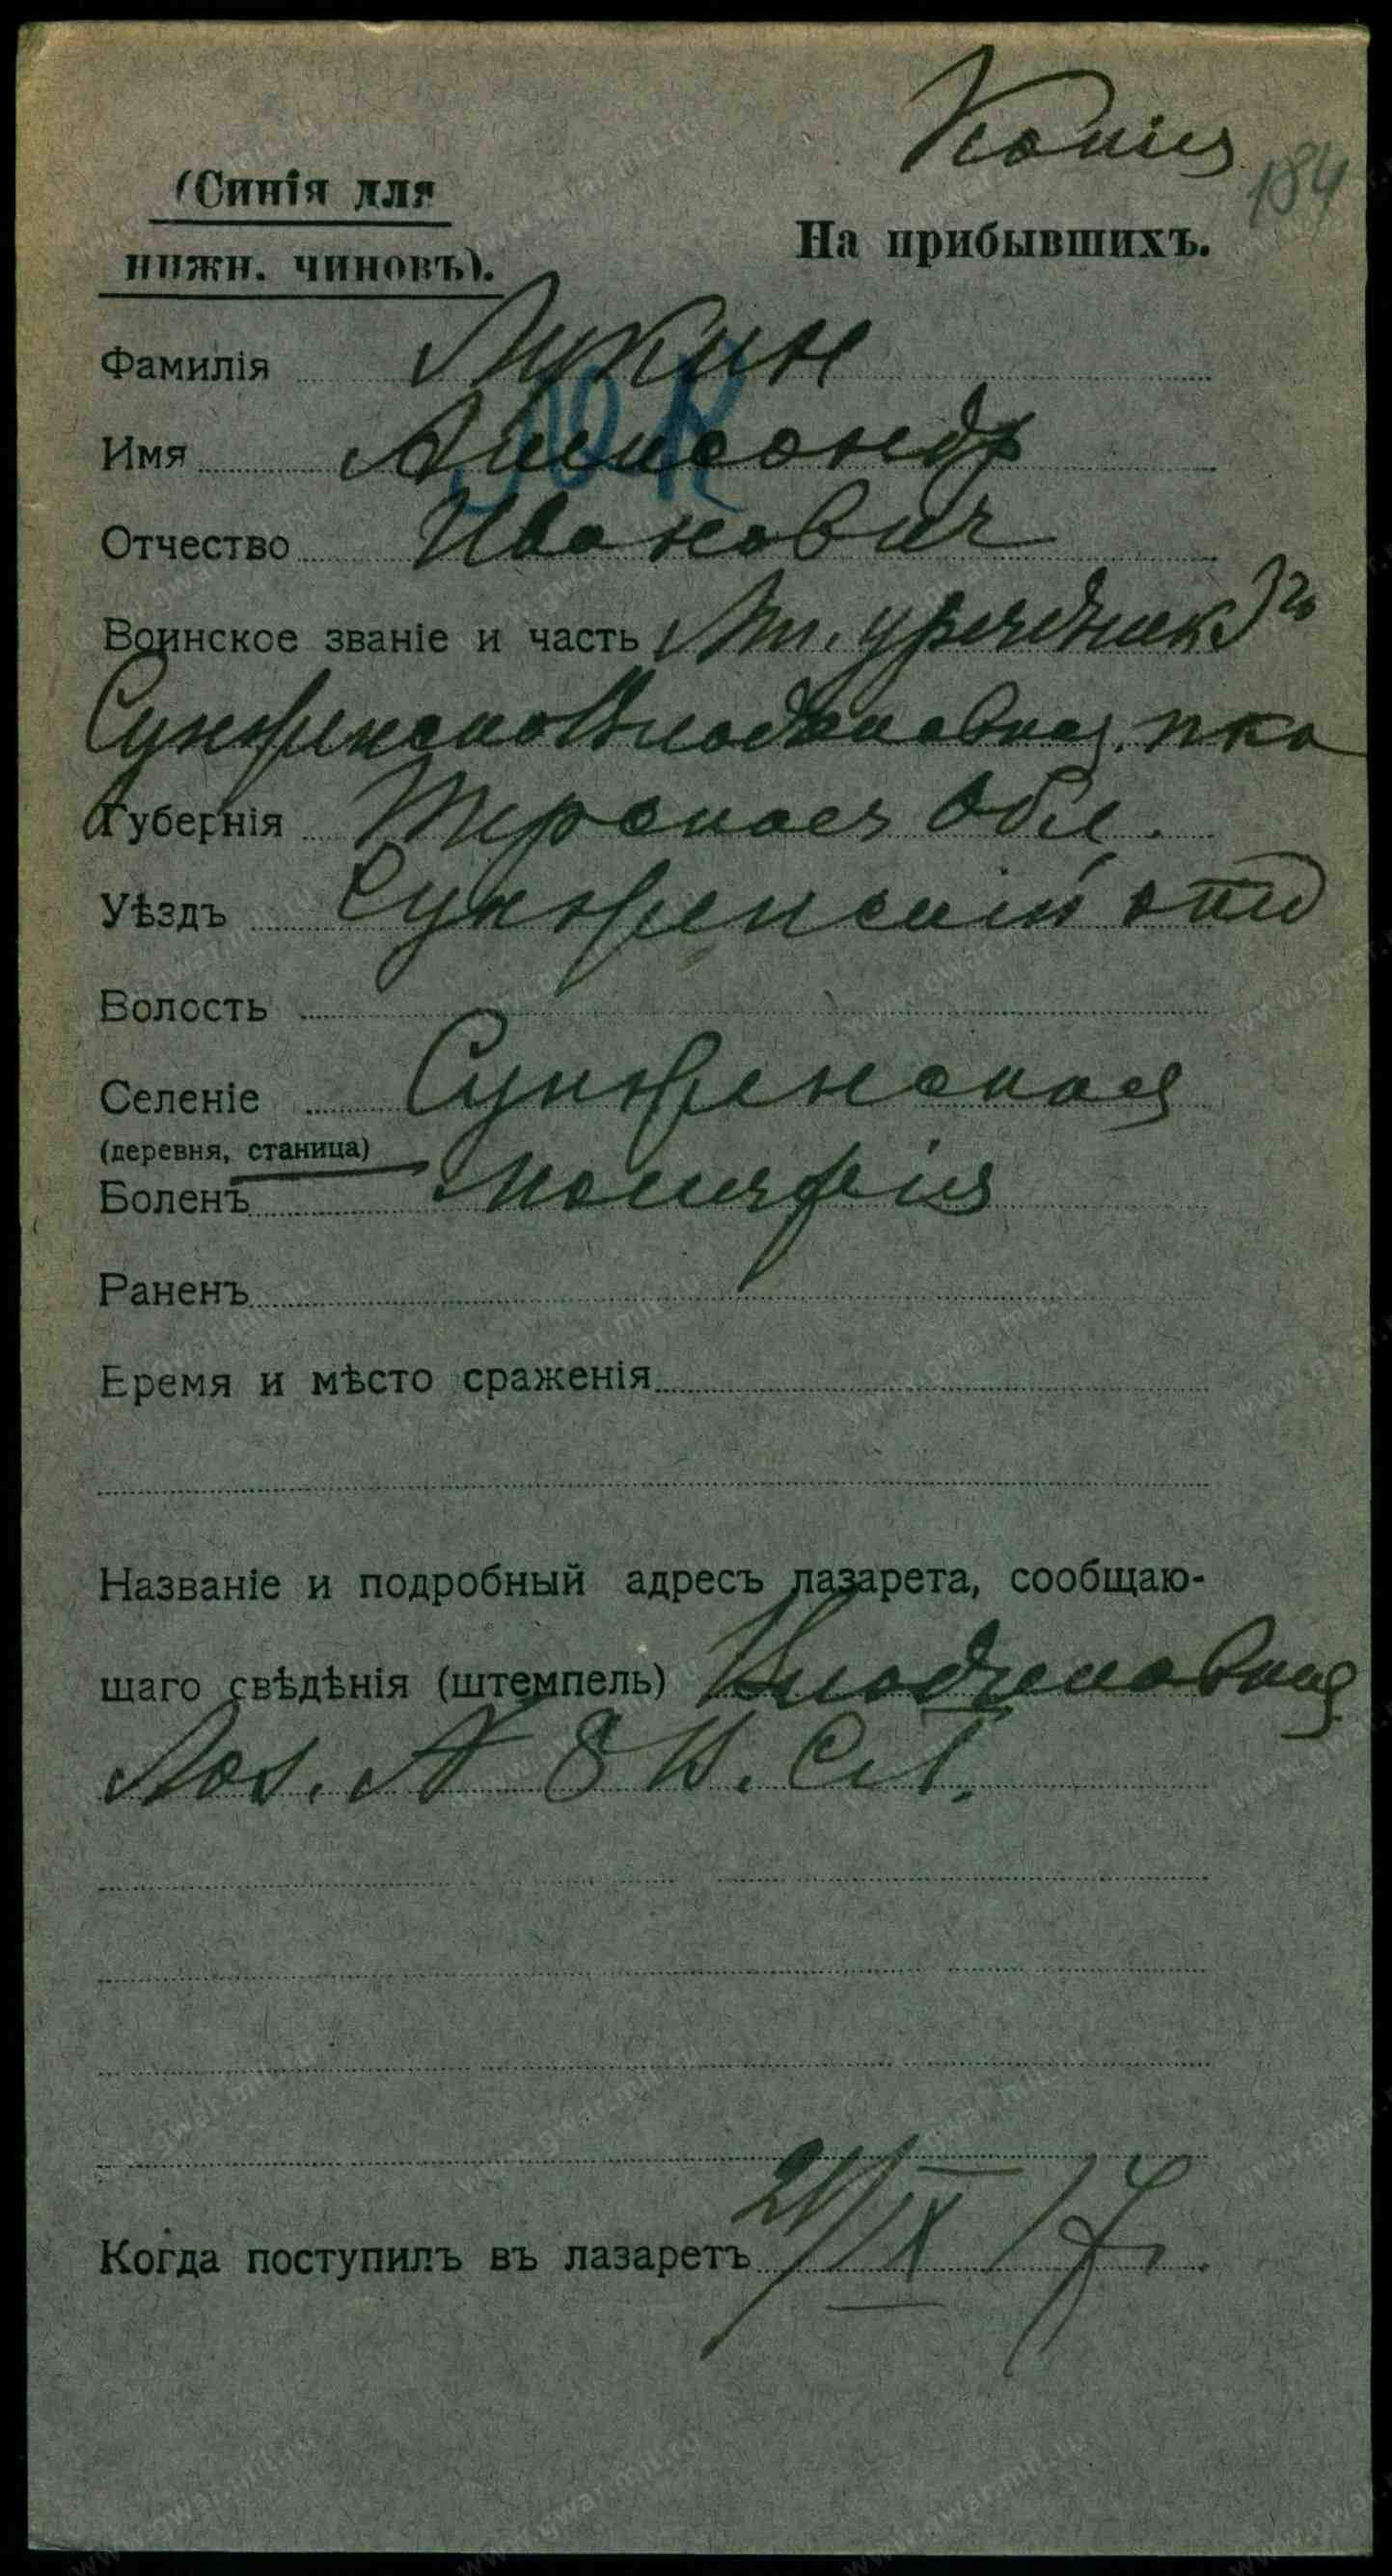 Копия
184
(Синія для
На прибывшихъ.
нижн. чиновъ).
Фамилія Лукин
Имя Александр
Отчество Иванович
Воинское званіе и часть Мл. урядник 3го
Сунженско Владикавказ. п-ка
Губернія Терская Обл.
Уѣздъ Сунженскій отд
Волость
Селеніе Сунженская
(деревня, станица)
Боленъ малярія
Раненъ
Время и мѣсто сраженія
Названіе и подробный адресъ лазарета, сообщаю-
щаго свѣдѣнія (штемпель) Владикавказ
Лаз. № 8 В. С.
Когда поступилъ въ лазаретъ 21/IX 17.